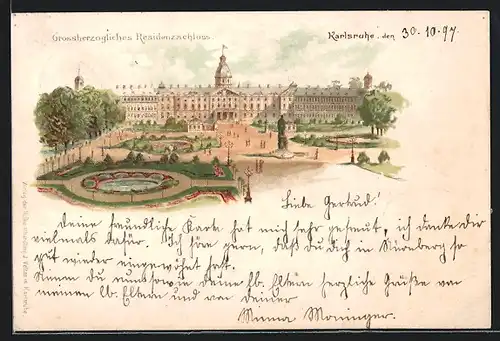 Grossherzogliches Residenzschloss.
Karlsruhe, den 30. 10. 97.
Liebe Gertrud!
Deine freundliche Karte hat mich sehr gefreut, ich danke dir
vielmals dafür. Ich höre gern, daß du dich in Nürnberg so
gut wieder eingewöhnt hast.
Nimm du nun sowie deine lb. Eltern herzliche Grüße von
meinen lb. Eltern und von deiner
Minna Moninger.